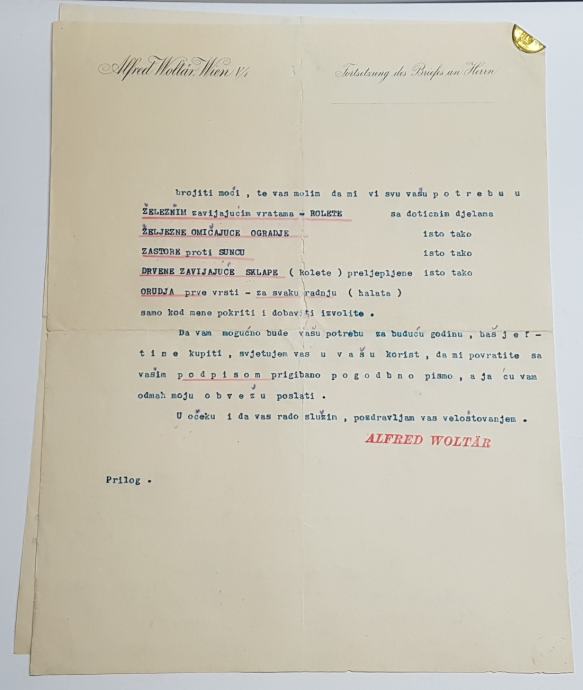 Alfred Woltär, Wien V/4
Fortsetzung des Briefes an Herrn
brojiti moći , te vas molim da mi vi svu vašu p o t r e b u u
ŽELEZNIM zavijajućim vratama - ROLETE sa doticnim djelama
ŽELJEZNE OMIČAJUCE OGRADJE isto tako
ZASTORE proti SUNCU isto tako
DRVENE ZAVIJAJUĆE SKLAPE ( kolete ) preljepljene isto tako
ORUDJA prve vrsti - za svaku radnju ( halata )
samo kod mene pokriti i dobaviti izvolite .
Da vam mogućno bude vašu potrebu za buduću godinu , baš j e f -
t i n e kupiti , svjetujem vas u v a š u korist , da mi povratite sa
vašim p o d p i s o m prigibano p o g o d b n o pismo , a ja ću vam
odmah moju o b v e z u poslati .
U očeku i da vas rado služin , pozdravljam vas veloštovanjem .
ALFRED WOLTÄR
Prilog .